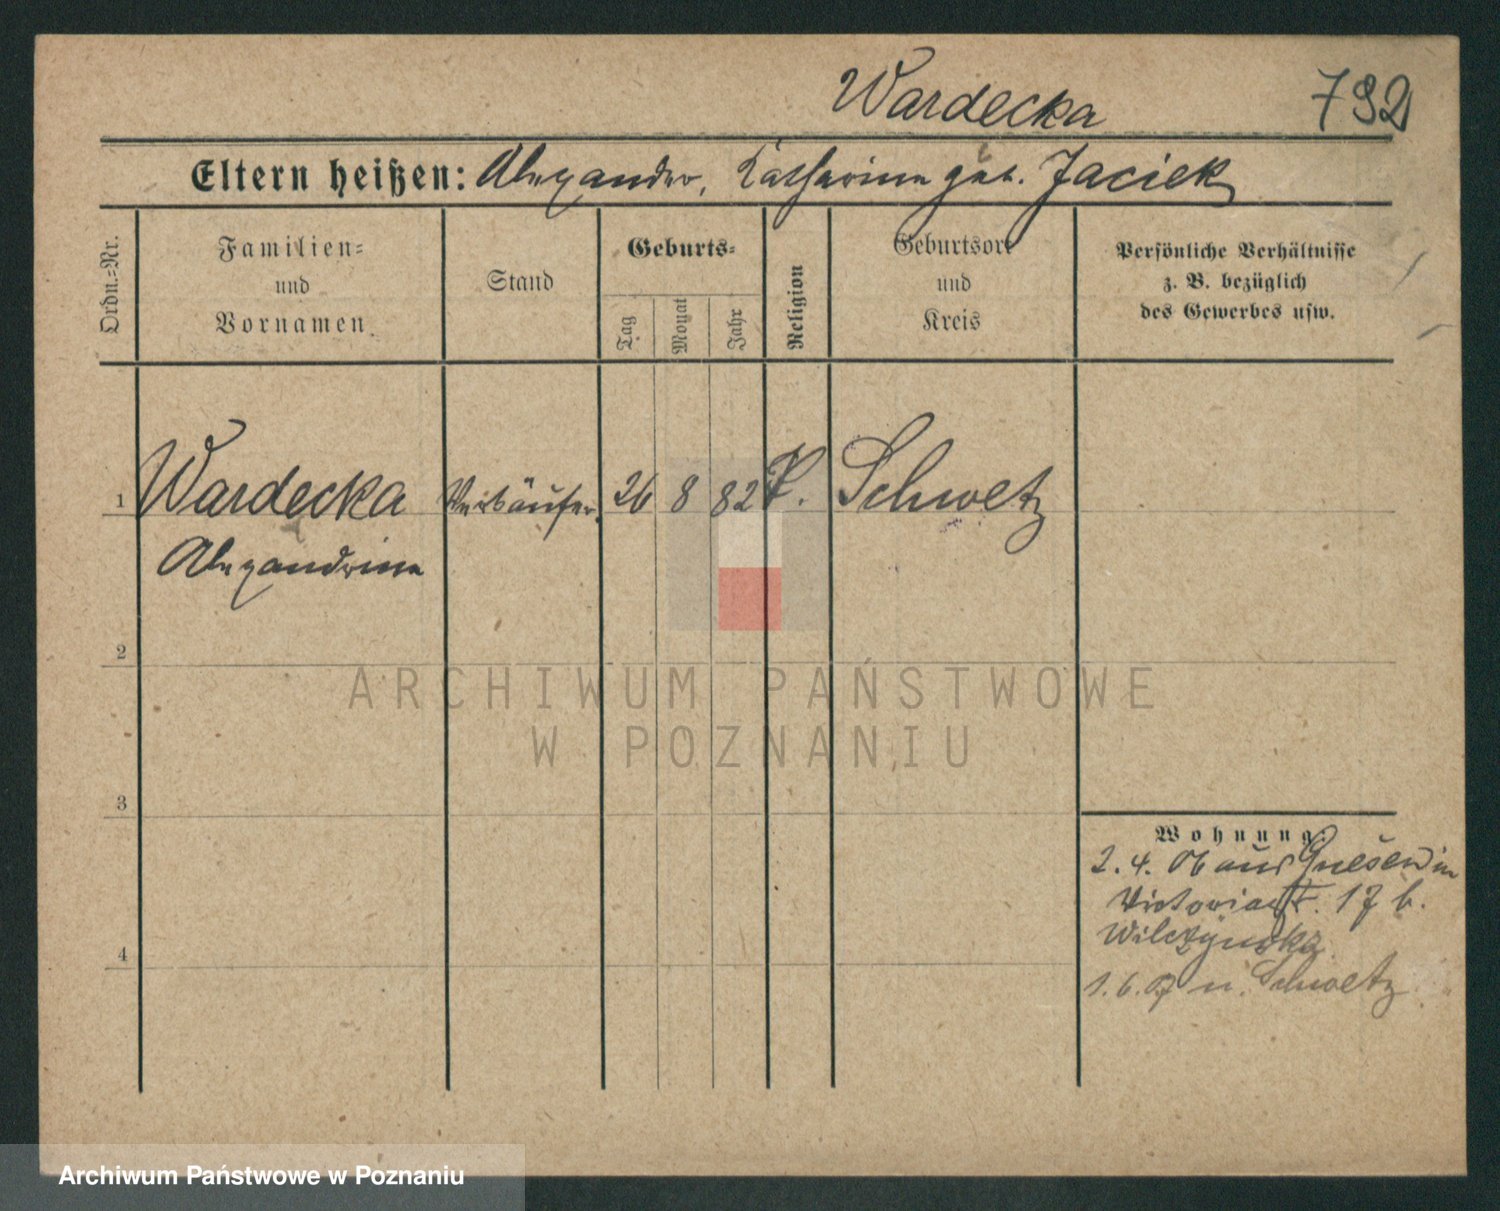 Wardecka 792
Eltern heißen: Alexander, Katharina geb. Jaciek
Ordn.-Nr.
Familien-
und
Vornamen
Stand
Geburts-
Tag
Monat
Jahr
Religion
Geburtsort
und
Kreis
Persönliche Verhältnisse
z. B. bezüglich
des Gewerbes usw.
1 Wardecka Verkäufer. 26 8 82 K. Schwetz
Alexandrina
2
ARCHIWUM PAŃSTWOWE
W POZNANIU
3
Wohnung:
2.4.06 aus Gnesen in
Victoriastr. 17 b.
Wilczynska
4
1.6.07 n. Schwetz
Archiwum Państwowe w Poznaniu